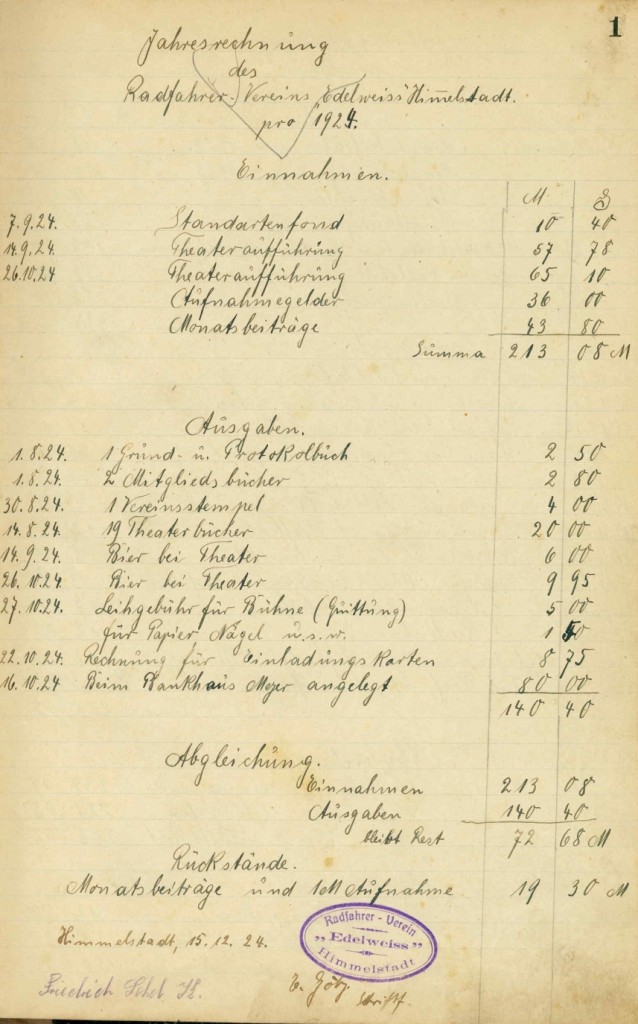 1
Jahresrechnung
des
Radfahrer-Vereins „Edelweiss" Him̅elstadt.
pro 1924.
Einnahmen.
M. ₰
7.9.24. Standartenfond 10 40
14.9.24. Theateraufführung 57 78
26.10.24 Theateraufführung 65 10
Aufnahmegelder 36 00
Monatsbeiträge 43 80
Summa 213 08 M
Ausgaben.
1.8.24. 1 Grund- u. Protokolbuch 2 50
1.8.24. 2 Mitgliedsbücher 2 80
30.8.24. 1 Vereinsstempel 4 00
14.8.24. 19 Theaterbücher 20 00
14.9.24. Bier bei Theater 6 00
26.10.24. Bier bei Theater 9 95
27.10.24. Leihgebühr für Bühne (Quittung) 5 00
für Papier Nägel u.s.w. 1 40
22.10.24. Rechnung für Einladungskarten 8 75
16.10.24 Beim Bankhaus Meyer angelegt 80 00
140 40
Abgleichung.
Einnahmen 213 08
Ausgaben 140 40
bleibt Rest 72 68 M
Rückstände.
Monatsbeiträge und 1 M Aufnahme 19 30 M
Himmelstadt, 15.12.24.
Radfahrer-Verein
„Edelweiss"
Himmelstadt
Friedrich
E. Götz.
Schriftf.